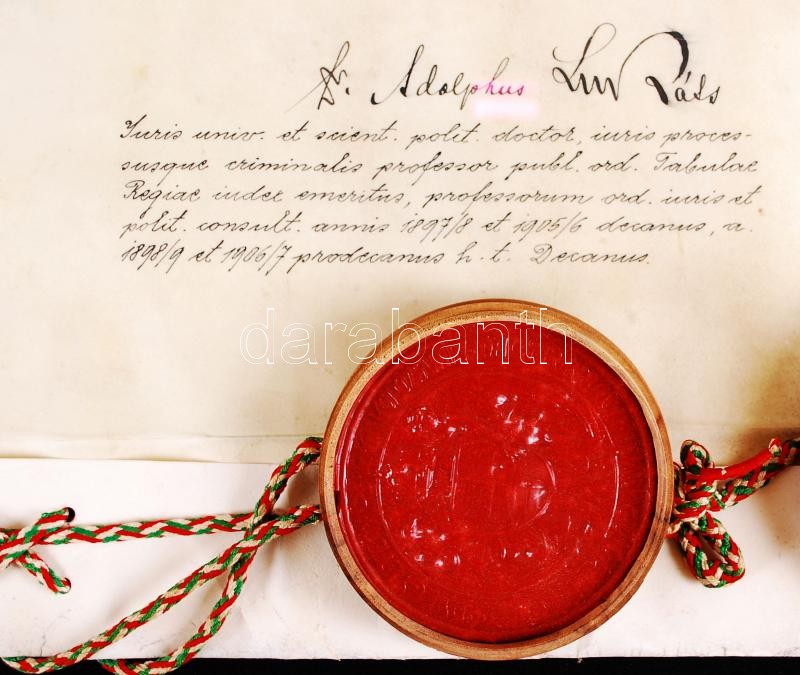 Dr. Adolphus Lukáts
Iuris univ. et scient. polit. doctor, iuris proces-
susque criminalis professor publ. ord. Tabulae
Regiae iudex emeritus, professorum ord. iuris et
polit. consult. annis 1897/8 et 1905/6 decanus, a.
1898/9 et 1906/7 prodecanus h. t. Decanus.
darabanth